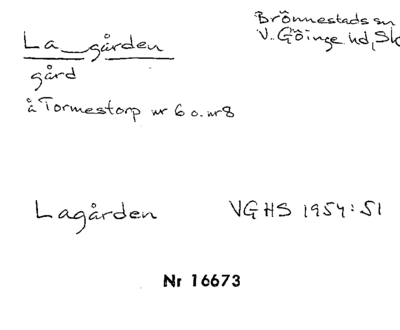 La_gården
Brönnestads sn
V. Göinge hd, Sk
gård
å Tormestorp nr 6 o. nr 8
Lagården VGHS 1954:51
Nr 16673